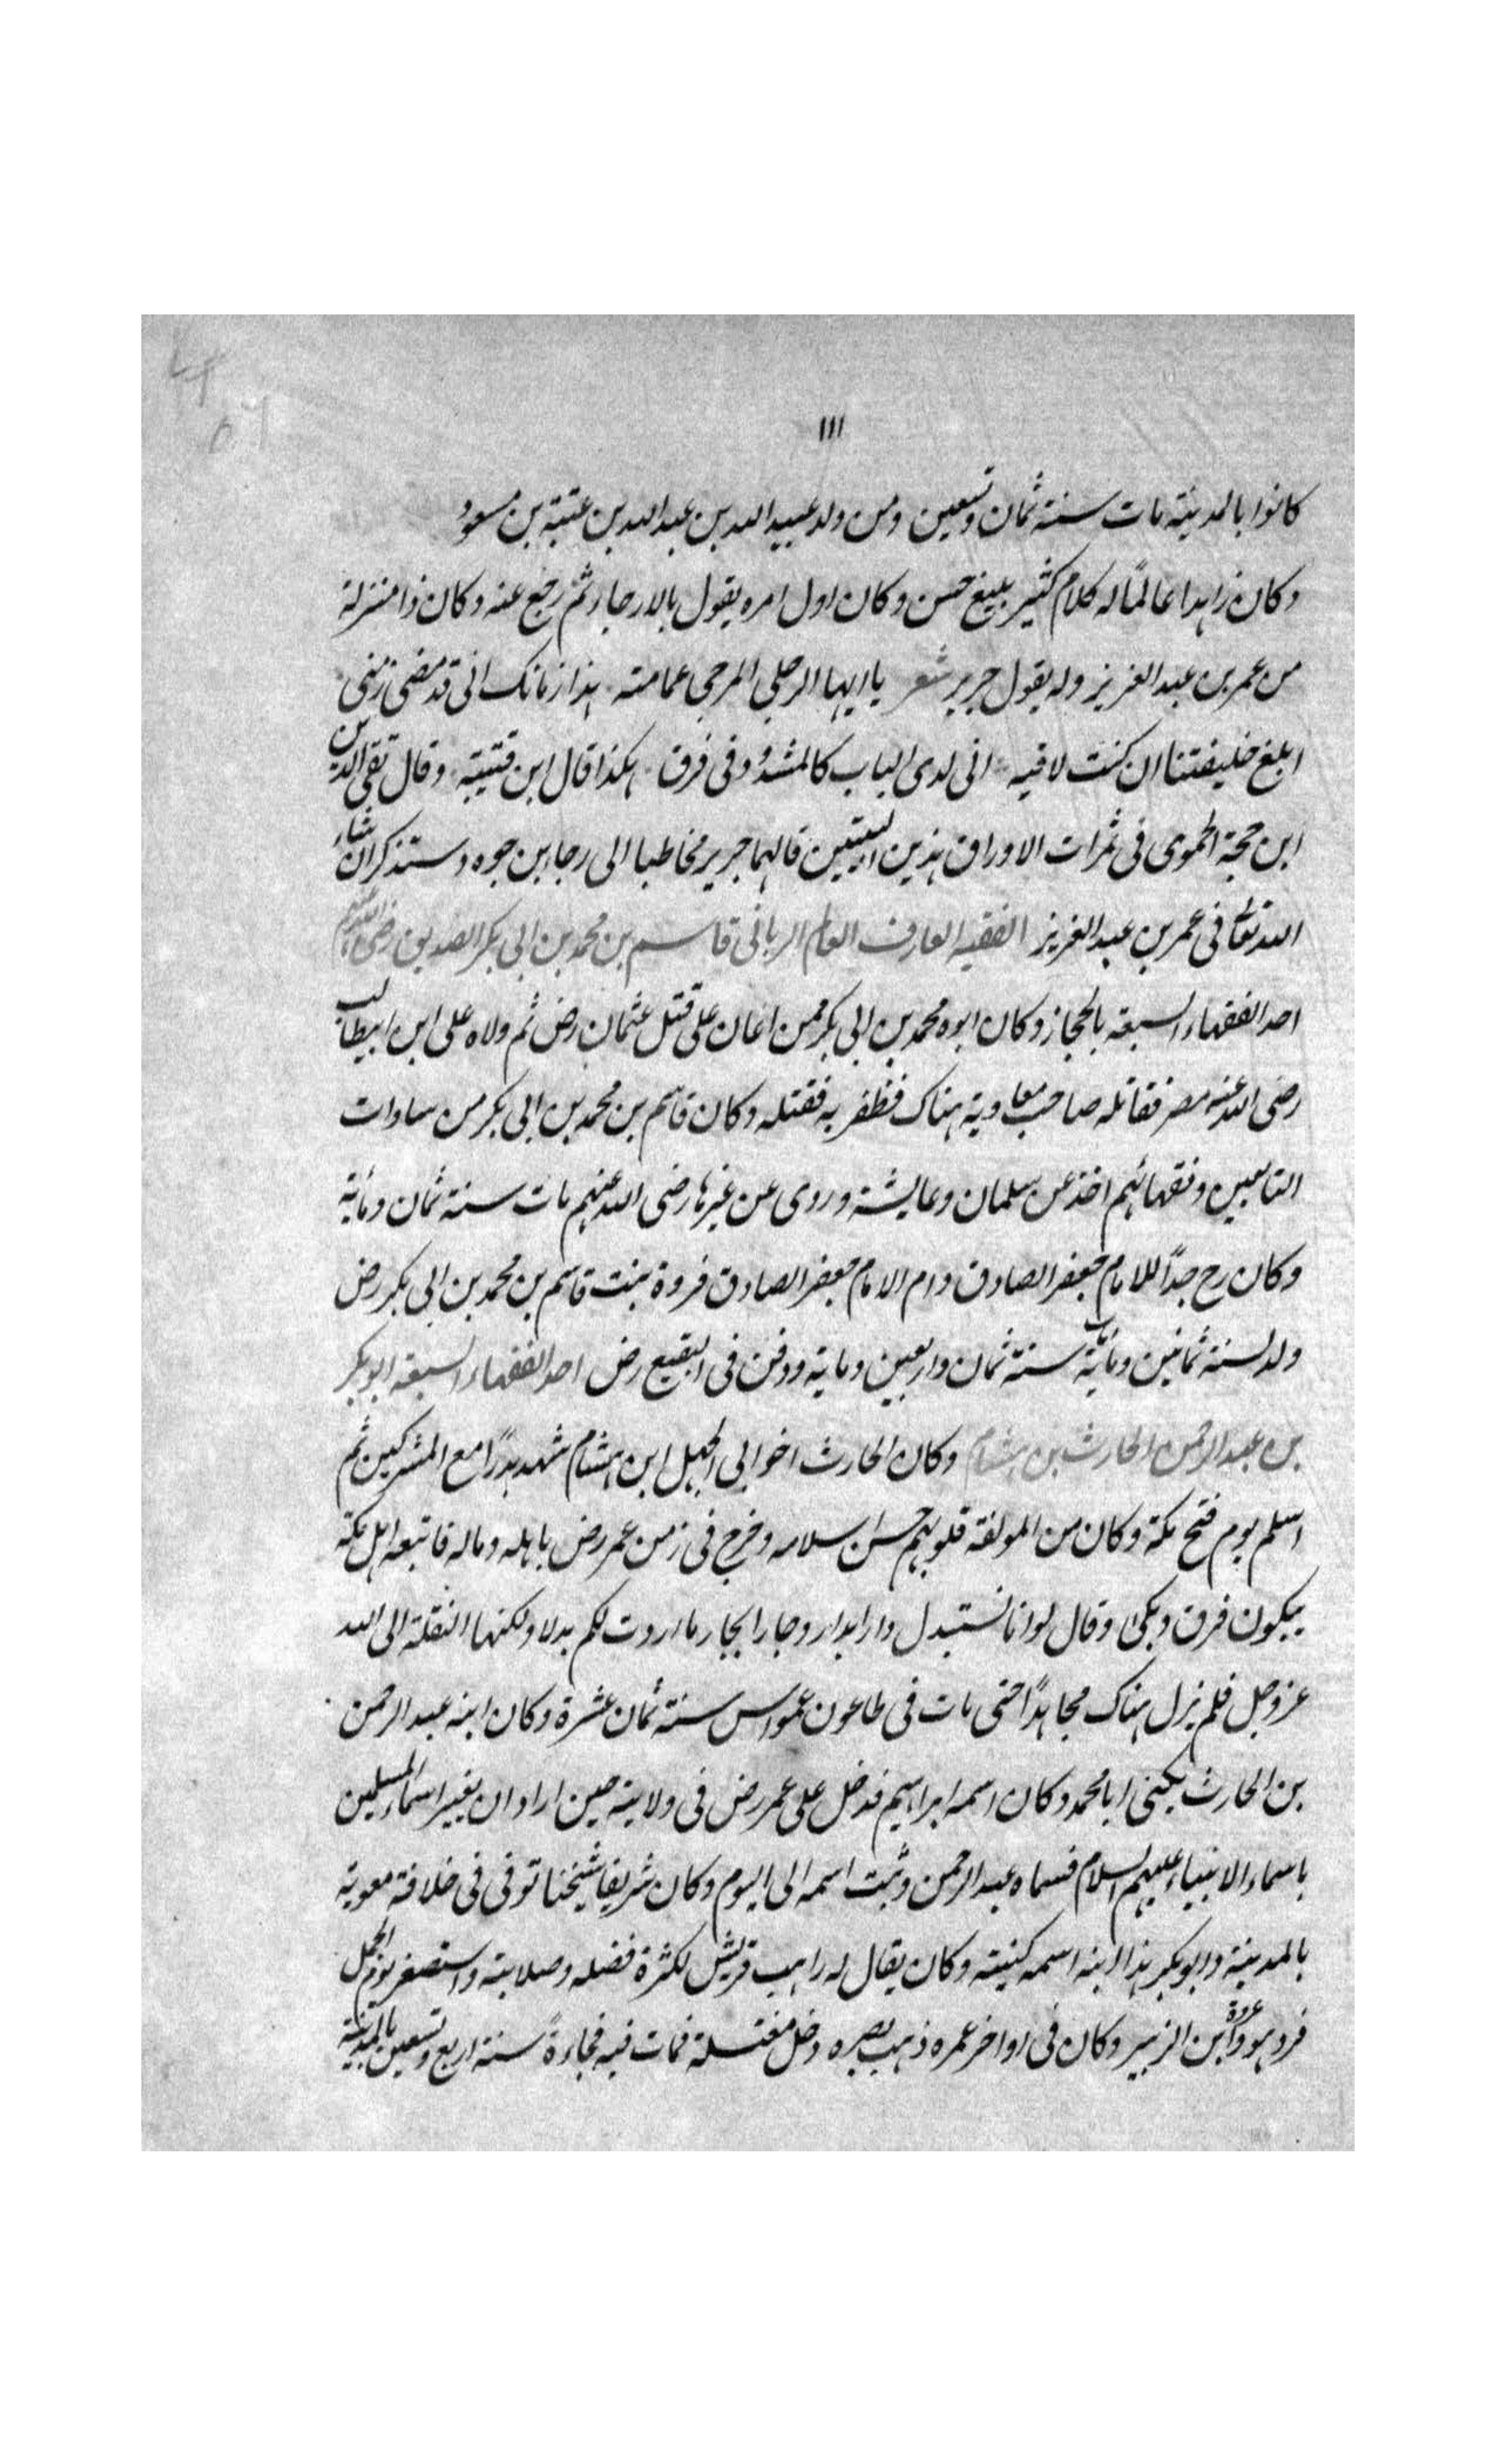 ١١١
كانوا بالمدينة مات سنة ثمان وتسعين ومن ولد عبيد الله بن عبد الله بن عتبة بن مسعود
وكان زاهدا عالمًا له كلام كثير بليغ حسن وكان اول امره يقول بالارجاء ثم رجع عنه وكان ذا منزلة
من عمر بن عبد العزيز وله يقول جرير شعر يا ايها الرجل المرجى عمامته هذا زمانك انى قد مضى زمنى
ابلغ خليفتنا ان كنت لاقيه انى لدى الباب كالمشدود فى قرق هكذا قال ابن قتيبة وقال تقى الدين
ابن حجة الحموى فى ثمرات الاوراق هذين البيتين قالهما جرير مخاطبا الى رجاء بن حوه وستذكر ان شاء
الله تعالى فى عمر بن عبد العزيز الفقيه العارف العالم الربانى قاسم بن محمد بن ابى بكر الصديق رضى الله عنهم
احد الفقهاء السبعة بالحجاز وكان ابوه محمد بن ابى بكر ممن اعان على قتل عثمان رض ثم ولاه على ابن ابيطالب
رضى الله عنه مصر فقاتله صاحب معاوية هناك فظفر به فقتله وكان قاسم بن محمد بن ابى بكر من سادات
التابعين وفقهائهم اخذ عن سلمان وعايشة وروى عن غيرها رضى الله عنهم مات سنة ثمان ومائة
وكان رح جدًا للامام جعفر الصادق وام الامام جعفر الصادق فروة بنت قاسم بن محمد بن ابى بكر رض
ولد لسنة ثمانين ومات سنة ثمان واربعين وماية ودفن فى البقيع رض احد الفقهاء السبعة ابو بكر
بن عبد الرحمن الحارث بن هشام وكان الحارث اخو ابى الجهل ابن هشام شهد بدرًا مع المشركين ثم
اسلم يوم فتح مكة وكان من المولفة قلوبهم حسن اسلامه وخرج فى زمن عمر رض باهله وماله فاتبعه اهل مكة
يبكون فرق وبكى وقال لو انا نستبدل دارا بدار وجارا بجار ما اردت لكم بدلا ولكنها النقلة الى الله
عز وجل فلم يزل هناك مجاهدًا حتى مات فى طاعون عمواس سنة ثمان عشرة وكان ابنه عبد الرحمن
بن الحارث يكنى ابا محمد وكان اسمه ابراهيم فدخل على عمر رض فى ولايته حين اراد ان يغير اسماء المسلمين
باسماء الانبياء عليهم السلام فسماه عبد الرحمن وثبت اسمه الى اليوم وكان شريفا شيخنا توفى فى خلافة معوية
بالمدينة وابو بكر هذا ابنه اسمه كنيته وكان يقال له راهب قريش لكثرة فضله وصلابته واستصغر يوم الجمل
فرد هو وعروة ابن الزبير وكان فى اواخر عمره ذهب بصره دخل مغتسلة فمات فيه فجاءةً سنة اربع وتسعين بالمدينة